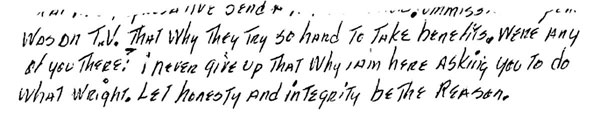 send
was on T.V. That why they try so hard to take benefits. Were any
of you there? i never give up that why i aim here asking you to do
what wright. Let honesty and integrity be the Reason.